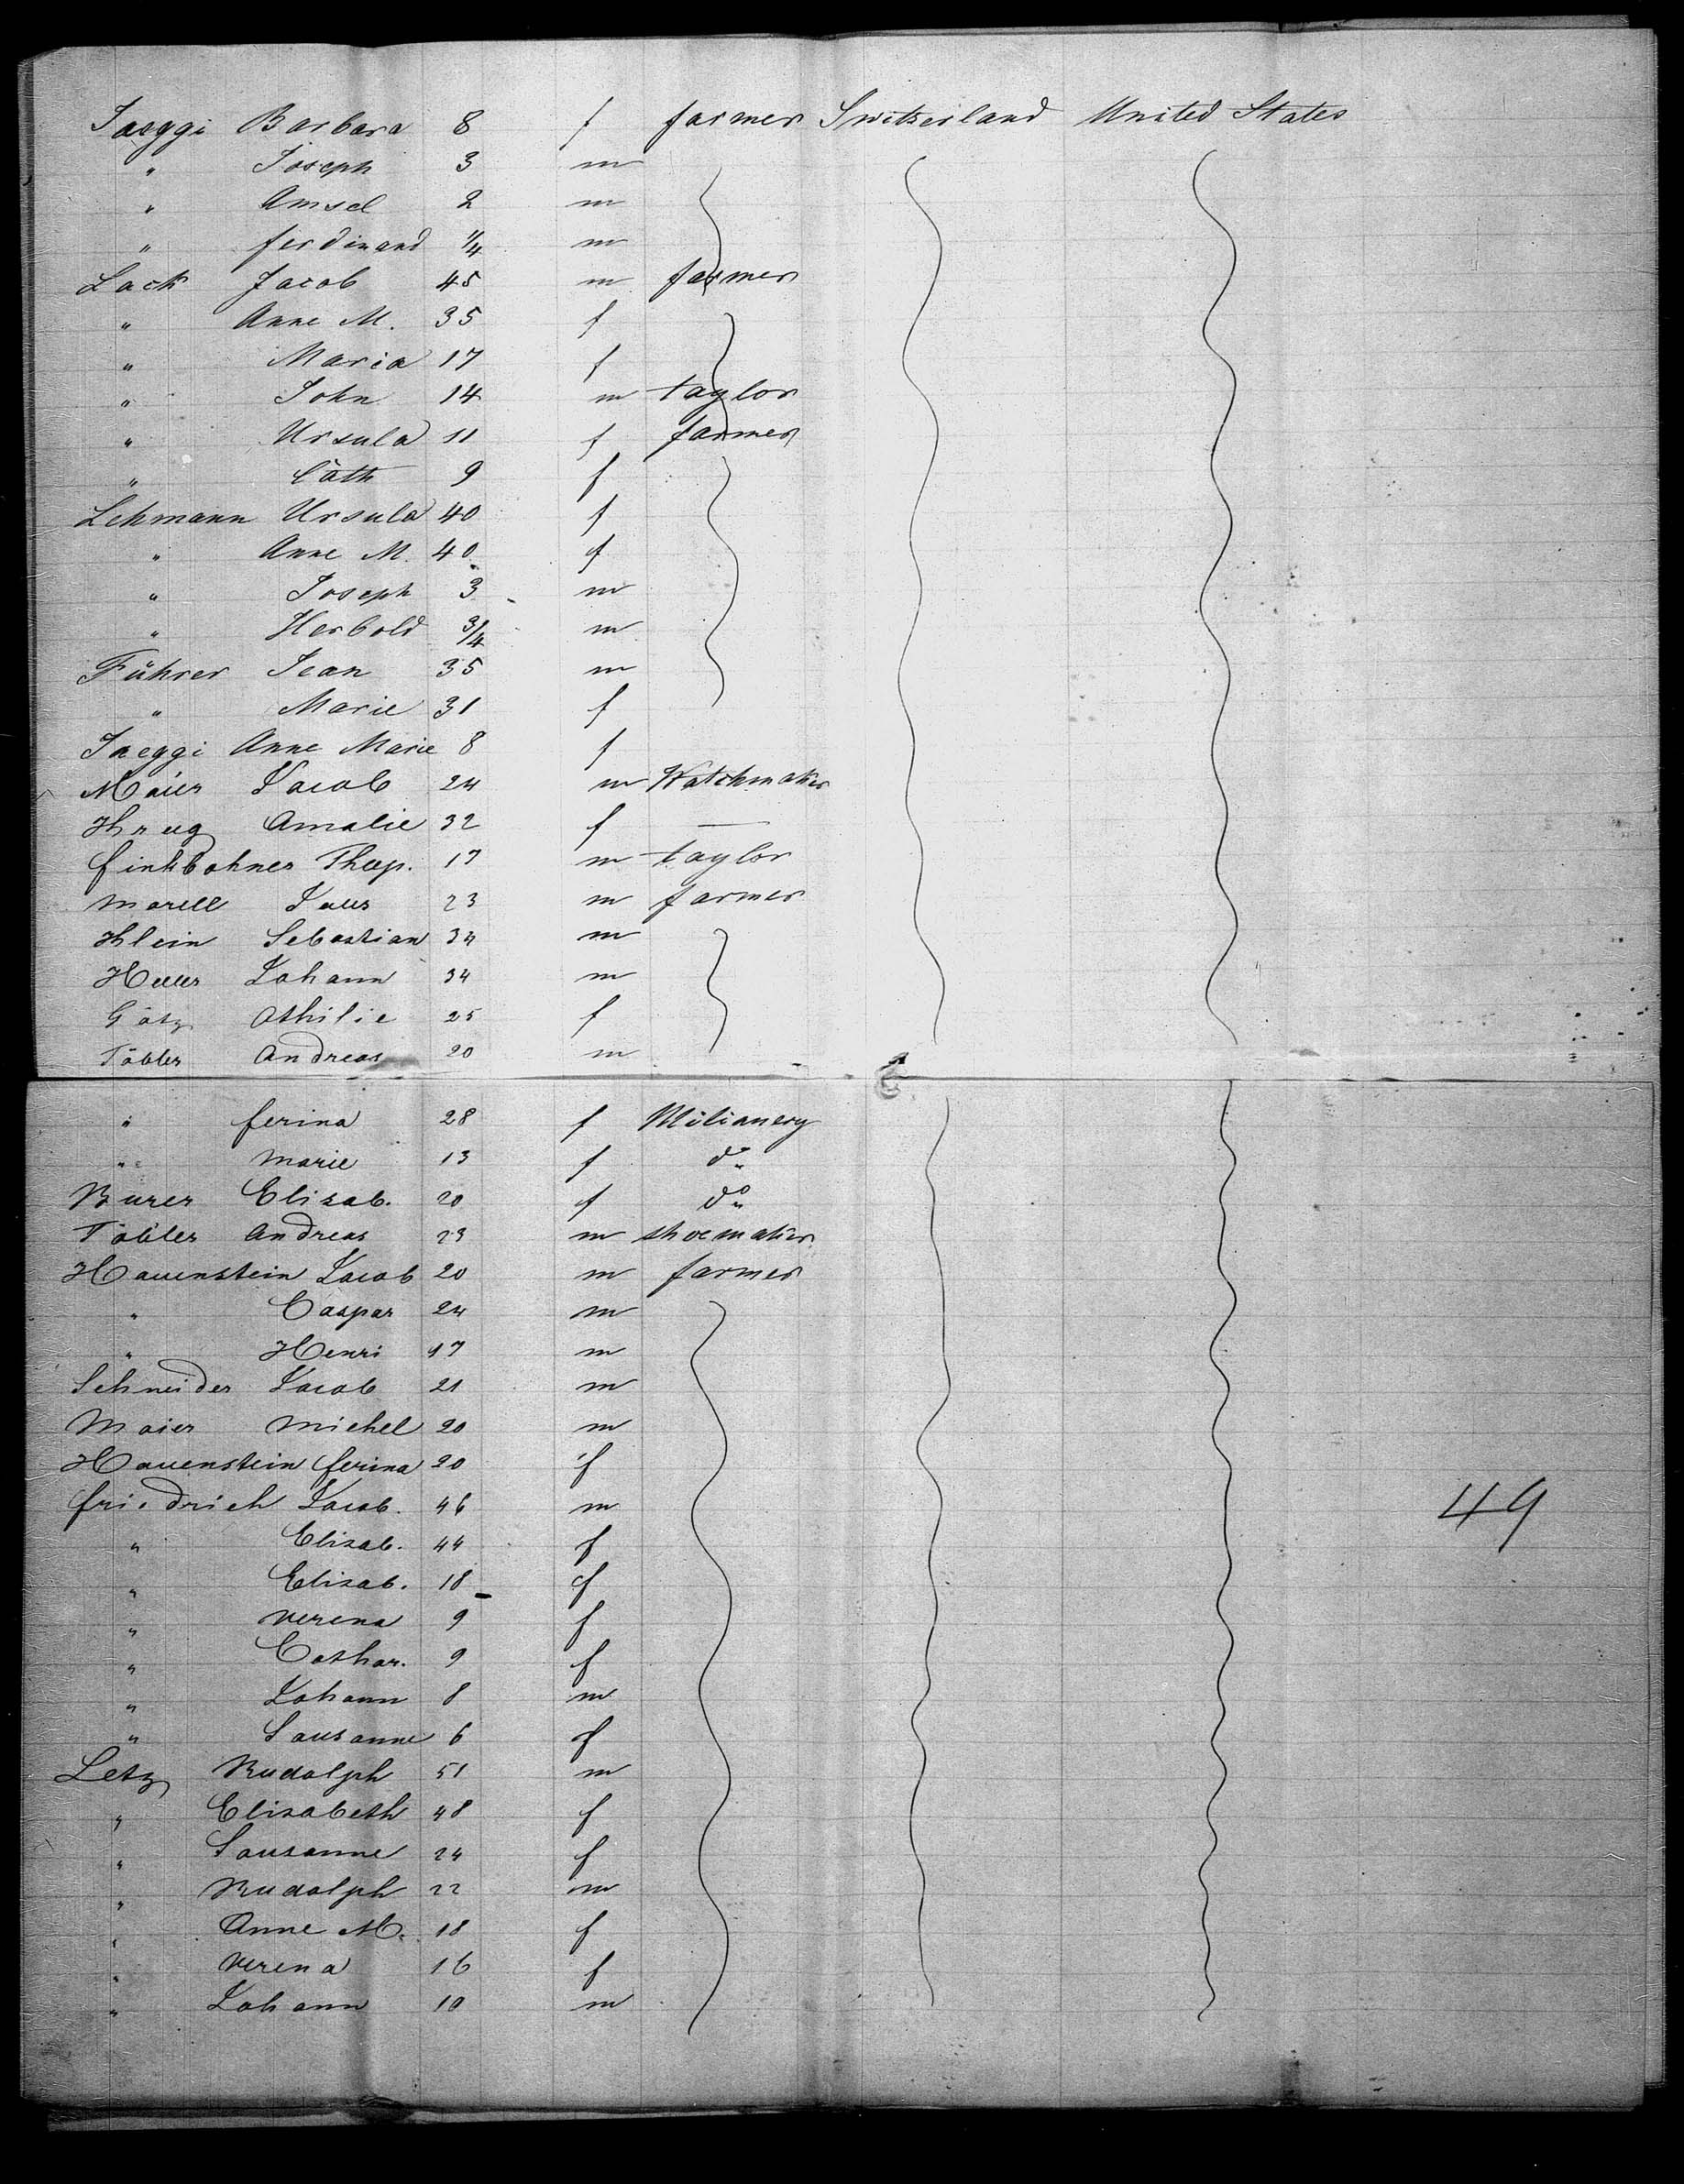 Jaeggi Barbara 8 f farmer Switzerland United States
" Joseph 3 m
" Amsel 2 m
" ferdinand 1/4 m
Lack Jacob 45 m farmer
" Anne M. 35 f
" Maria 17 f
" John 14 m taylor
" Ursula 11 f farmer
" Cath 9 f
Lehmann Ursula 40 f
" Anne M. 40 f
" Joseph 3 m
" Herbold 3/4 m
Führer Jean 35 m
" Marie 31 f
Jaeggi Anne Marie 8 f
Maier Jacob 24 m Watchmaker
Krug Amalie 32 f —
finkbohner Theop. 17 m taylor
Morell 23 m farmer
Klein Sebastian 34 m
Heller Johann 34 m
Götz Othilie 25 f
Tobler Andreas 20 m
" ferina 28 f Milianery
" Marie 13 f do
Burer Elisab. 20 f do
Tobler Andreas 23 m shoemaker
Hauenstein Jacob 20 m farmer
" Caspar 24 m
" Henri 17 m
Schneider Jacob 21 m
Maier Michel 20 m
Hauenstein ferina 20 f
friedrich Jacob. 46 m 49
" Elisab. 44 f
" Elisab. 18 f
" Verena 9 f
" Cathar. 9 f
" Johann 8 m
" Sausanne 6 f
Letz Rudolph 51 m
" Elisabeth 48 f
" Sausanne 24 f
" Rudolph 22 m
" Anne M. 18 f
" Verena 16 f
" Johann 10 m